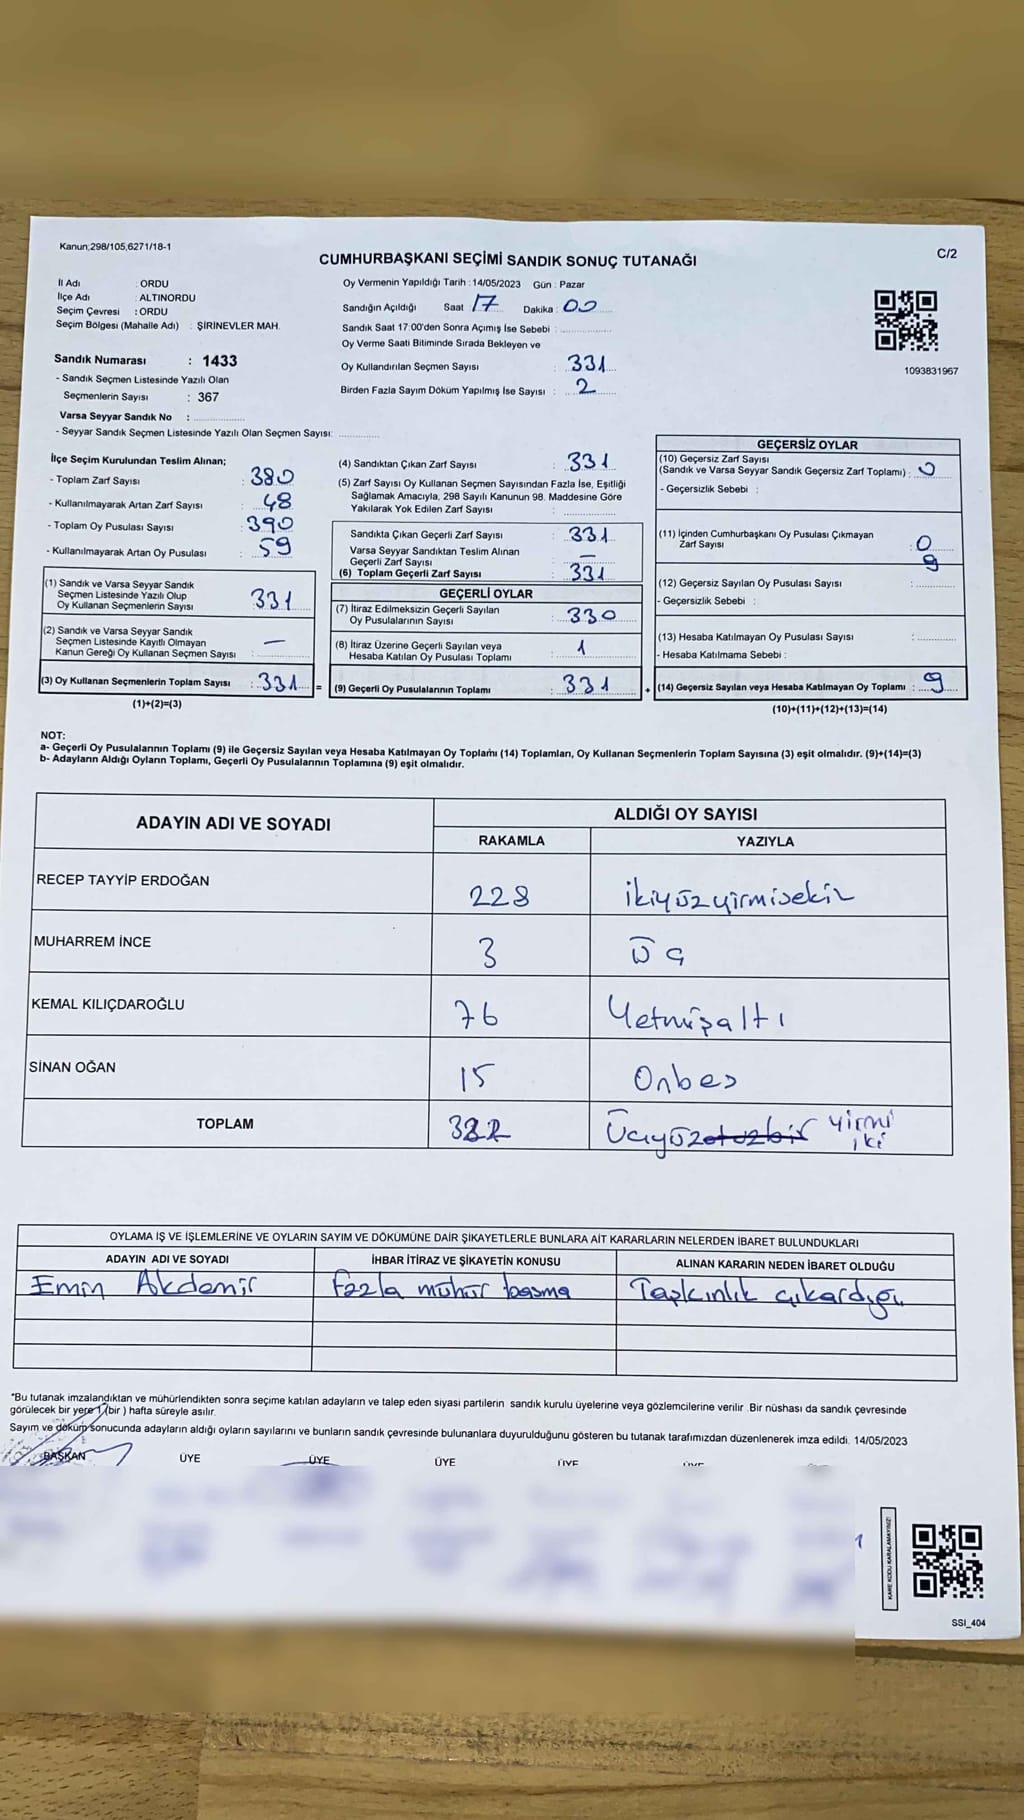 Kanun;298/105,6271/18-1
C/2
CUMHURBAŞKANI SEÇİMİ SANDIK SONUÇ TUTANAĞI
İl Adı : ORDU
İlçe Adı : ALTINORDU
Seçim Çevresi : ORDU
Seçim Bölgesi (Mahalle Adı) : ŞİRİNEVLER MAH.
Sandık Numarası : 1433
- Sandık Seçmen Listesinde Yazılı Olan
Seçmenlerin Sayısı : 367
Varsa Seyyar Sandık No :
- Seyyar Sandık Seçmen Listesinde Yazılı Olan Seçmen Sayısı:
Oy Vermenin Yapıldığı Tarih : 14/05/2023 Gün : Pazar
Sandığın Açıldığı Saat 17 Dakika : 00
Sandık Saat 17:00'den Sonra Açımış İse Sebebi :
Oy Verme Saati Bitiminde Sırada Bekleyen ve
Oy Kullandırılan Seçmen Sayısı : 331
Birden Fazla Sayım Döküm Yapılmış İse Sayısı : 2
1093831967
İlçe Seçim Kurulundan Teslim Alınan;
- Toplam Zarf Sayısı : 380
- Kullanılmayarak Artan Zarf Sayısı : 48
- Toplam Oy Pusulası Sayısı : 390
- Kullanılmayarak Artan Oy Pusulası : 59
(1) Sandık ve Varsa Seyyar Sandık
Seçmen Listesinde Yazılı Olup
Oy Kullanan Seçmenlerin Sayısı 331
(2) Sandık ve Varsa Seyyar Sandık
Seçmen Listesinde Kayıtlı Olmayan
Kanun Gereği Oy Kullanan Seçmen Sayısı : —
(3) Oy Kullanan Seçmenlerin Toplam Sayısı : 331 =
(1)+(2)=(3)
(4) Sandıktan Çıkan Zarf Sayısı : 331
(5) Zarf Sayısı Oy Kullanan Seçmen Sayısından Fazla İse, Eşitliği
Sağlamak Amacıyla, 298 Sayılı Kanunun 98. Maddesine Göre
Yakılarak Yok Edilen Zarf Sayısı :
Sandıkta Çıkan Geçerli Zarf Sayısı : 331
Varsa Seyyar Sandıktan Teslim Alınan
Geçerli Zarf Sayısı : —
(6) Toplam Geçerli Zarf Sayısı : 331
GEÇERLİ OYLAR
(7) İtiraz Edilmeksizin Geçerli Sayılan
Oy Pusulalarının Sayısı : 330
(8) İtiraz Üzerine Geçerli Sayılan veya
Hesaba Katılan Oy Pusulası Toplamı : 1
(9) Geçerli Oy Pusulalarının Toplamı : 331 +
GEÇERSİZ OYLAR
(10) Geçersiz Zarf Sayısı
(Sandık ve Varsa Seyyar Sandık Geçersiz Zarf Toplamı) : 0
- Geçersizlik Sebebi :
(11) İçinden Cumhurbaşkanı Oy Pusulası Çıkmayan
Zarf Sayısı : 0
(12) Geçersiz Sayılan Oy Pusulası Sayısı : 9
- Geçersizlik Sebebi :
(13) Hesaba Katılmayan Oy Pusulası Sayısı :
- Hesaba Katılmama Sebebi :
(14) Geçersiz Sayılan veya Hesaba Katılmayan Oy Toplamı : 9
(10)+(11)+(12)+(13)=(14)
NOT:
a- Geçerli Oy Pusulalarının Toplamı (9) ile Geçersiz Sayılan veya Hesaba Katılmayan Oy Toplamı (14) Toplamları, Oy Kullanan Seçmenlerin Toplam Sayısına (3) eşit olmalıdır. (9)+(14)=(3)
b- Adayların Aldığı Oyların Toplamı, Geçerli Oy Pusulalarının Toplamına (9) eşit olmalıdır.
ADAYIN ADI VE SOYADI ALDIĞI OY SAYISI
RAKAMLA YAZIYLA
RECEP TAYYİP ERDOĞAN 228 ikiyüzyirmisekiz
MUHARREM İNCE 3 üç
KEMAL KILIÇDAROĞLU 76 Yetmişaltı
SİNAN OĞAN 15 Onbeş
TOPLAM 322 Üçyüzotuzbir yirmi
iki
OYLAMA İŞ VE İŞLEMLERİNE VE OYLARIN SAYIM VE DÖKÜMÜNE DAİR ŞİKAYETLERLE BUNLARA AİT KARARLARIN NELERDEN İBARET BULUNDUKLARI
ADAYIN ADI VE SOYADI İHBAR İTİRAZ VE ŞİKAYETİN KONUSU ALINAN KARARIN NEDEN İBARET OLDUĞU
Emin Akdemir Fazla mühür basma Taşkınlık çıkardığı
*Bu tutanak imzalandıktan ve mühürlendikten sonra seçime katılan adayların ve talep eden siyasi partilerin sandık kurulu üyelerine veya gözlemcilerine verilir .Bir nüshası da sandık çevresinde
görülecek bir yere 1 (bir ) hafta süreyle asılır.
Sayım ve döküm sonucunda adayların aldığı oyların sayılarını ve bunların sandık çevresinde bulunanlara duyurulduğunu gösteren bu tutanak tarafımızdan düzenlenerek imza edildi. 14/05/2023
BAŞKAN ÜYE ÜYE ÜYE ÜYE
KARE KODU KARALAMAYINIZ!
SSI_404